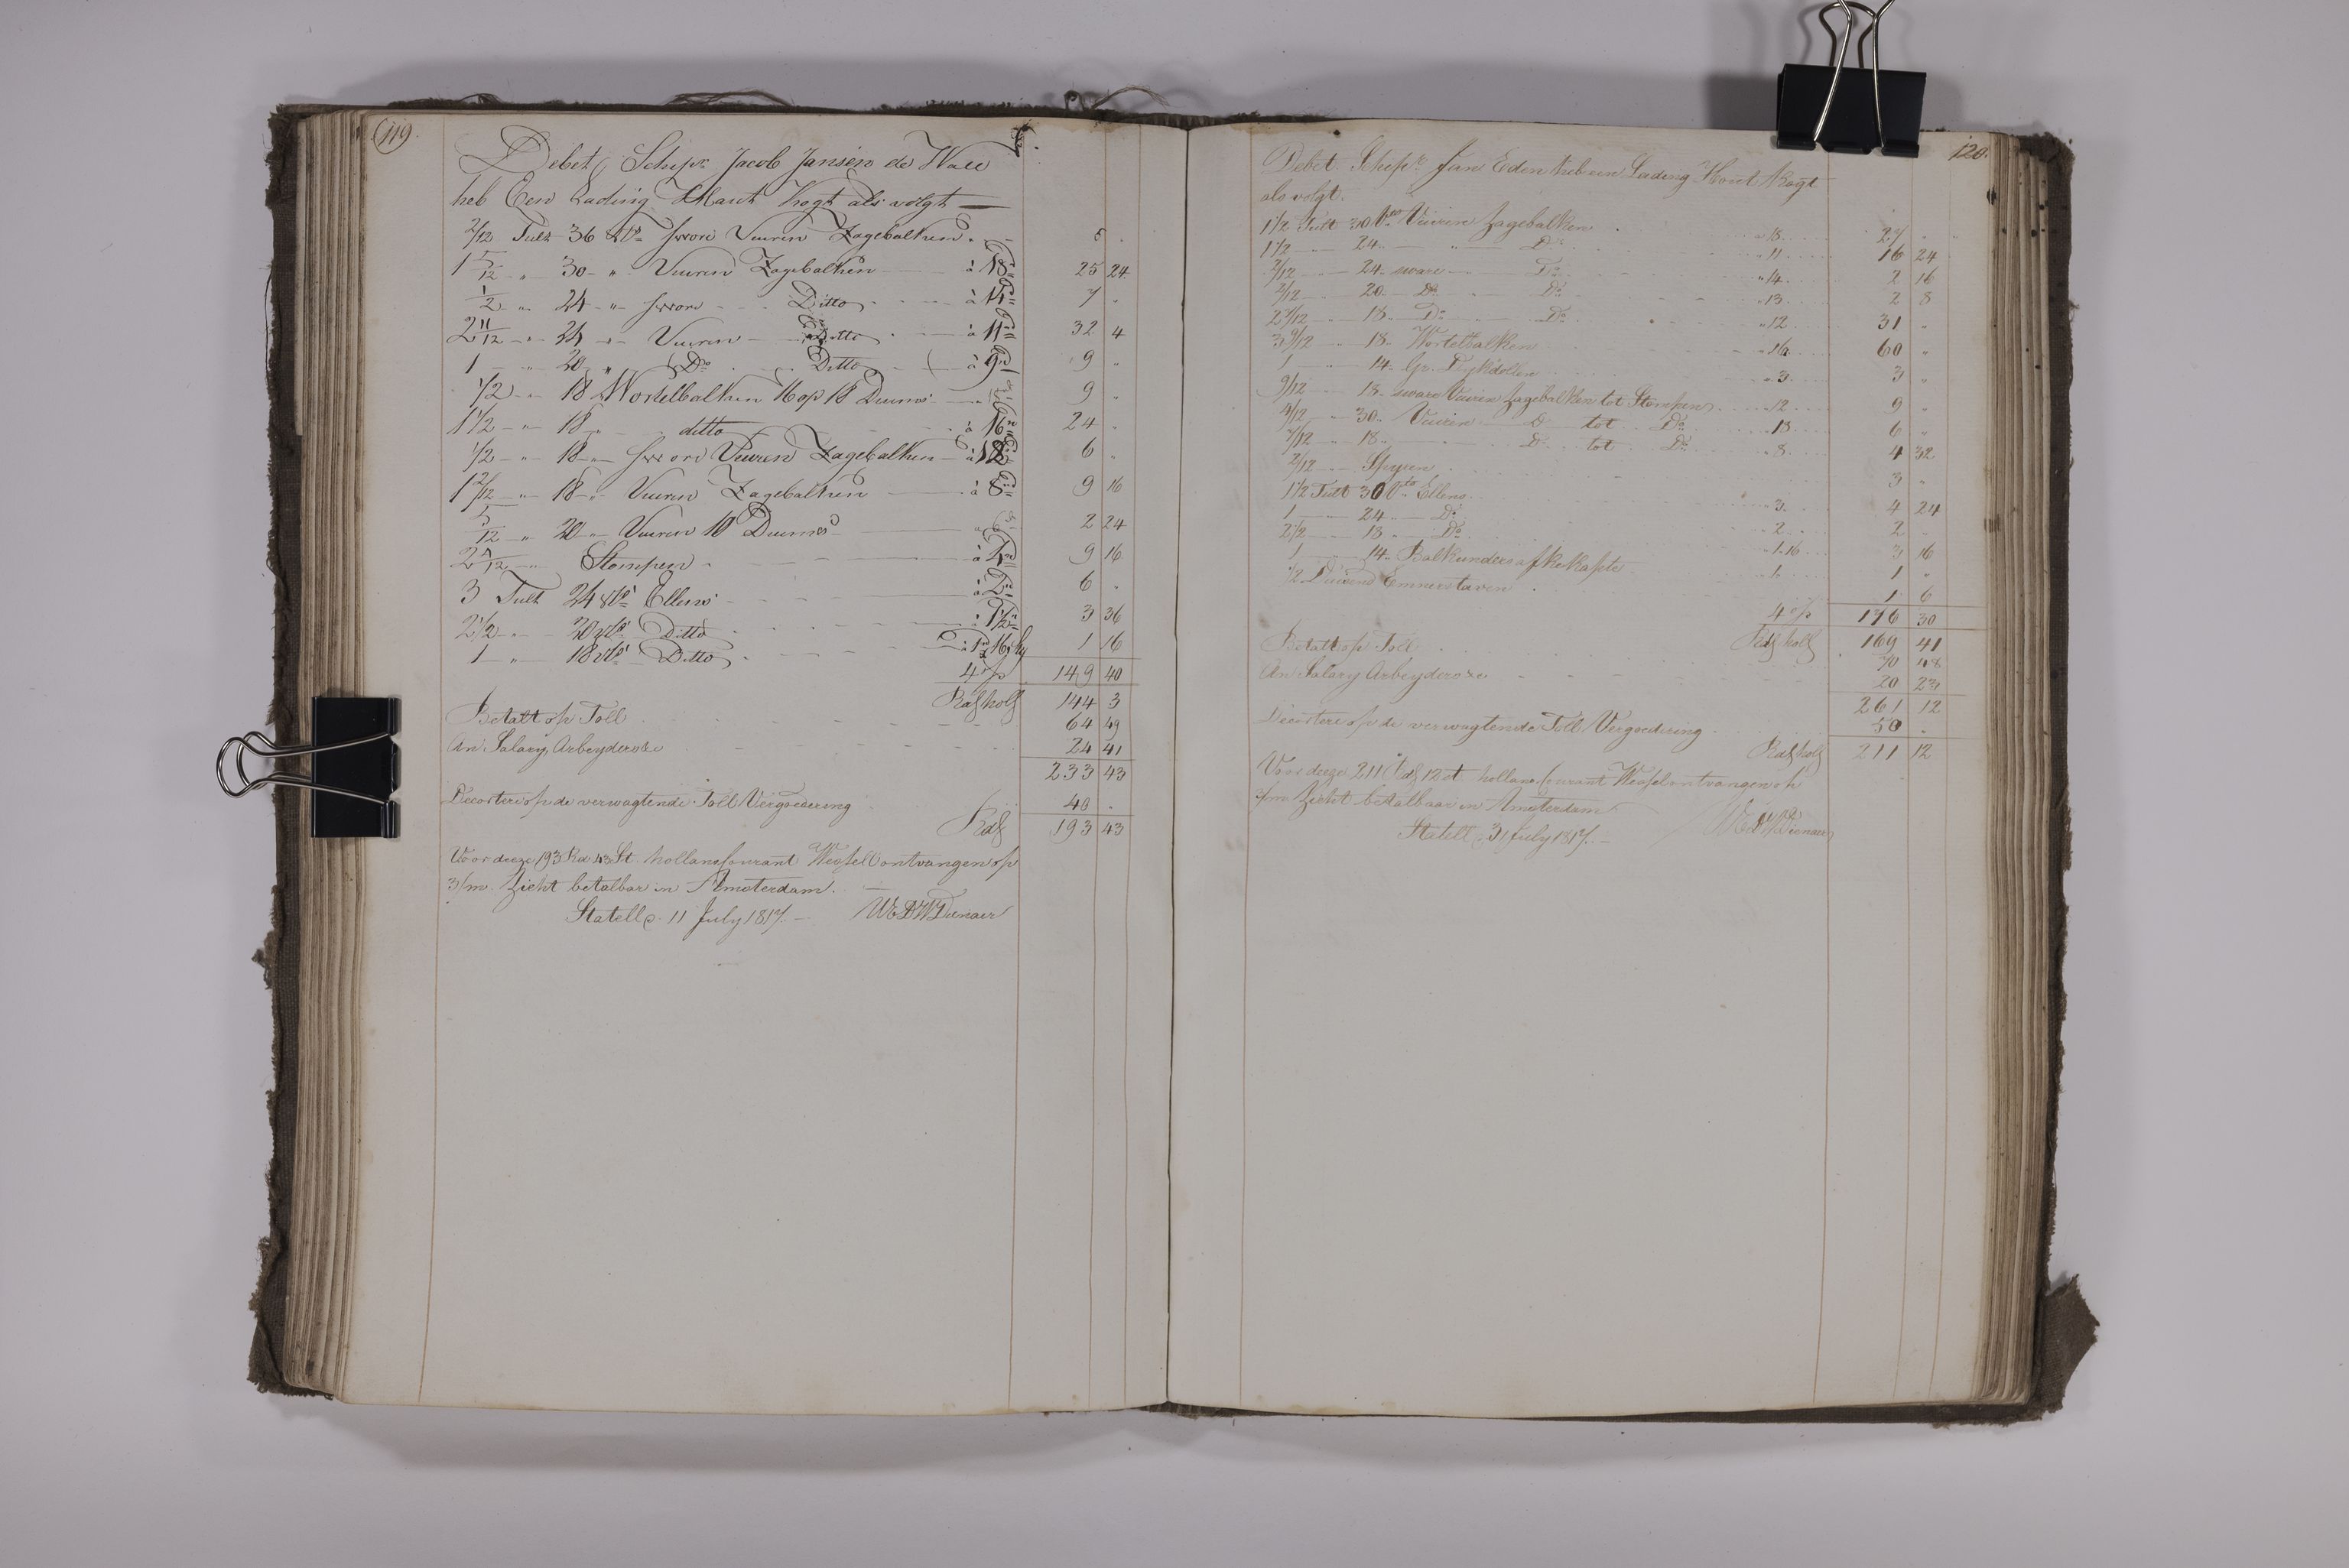 119.
Debet, Schipr. Jacob Jansen de Wall
heb Een Lading Haut kogt als volgt —
2/12 Tult 36 vts. swore Vuuren Zagebalken. 5 "
1 5/12 " 30 " Vuuren Zagebalken — à 18 25 24
1/2 " 24 " swore Ditto à 14 7 "
2 11/12 " 24 " Vuuren Ditto à 11 32 4
1 " 20 " Do. Ditto à 9 9 "
1/2 " 18 Wortelbalken 16 op 18 Duims 9 "
1 1/2 " 18 ditto à 16 24 "
1/2 " 18 " swore Vuuren Zagebalken à 12 6 "
1 2/12 " 18 " Vuuren Zagebalken à 8 9 16
5/12 " 20 " Vuuren 10 Duims 2 24
2 4/12 " Stompen à 4 9 16
3 Tult 24 vts. Ellens à 2 6 "
2 1/2 " 20 vts. Ditto à 1 1/2 3 36
1 " 18 vts. Ditto à 1 16 1 16
4 % 149 40
Rds holl 144 3
Betalt op Toll 64 49
An Salary, Arbeyders &c 24 41
233 43
Decortere op de verwagtende Toll Vergoedering 40 "
Rds 193 43
Voor deeze 193 Rd 43 St. hollans Courant Wessel ontvangen op
3/m. Zicht betalbar in Amsterdam.
Statelle 11 July 1817.
120.
Debet Schipr. Jan Eden heb een Lading Hout kogt
als volgt.
1 1/2 Tult 30 Vto Vuuren Zagebalken " 18 27 "
1 1/2 " 24 " Do. " 11 16 24
2/12 " 24 " sware Do. " 14 2 16
2/12 " 20 Do. Do. " 13 2 8
2 7/12 " 18 Do. Do. " 12 31 "
3 9/12 " 18 Wortelbalken " 16 60 "
1 " 14 Gr. Dykdollen " 3 3 "
9/12 " 18 sware Vuuren Zagebalken tot Stompen " 12 9 "
4/12 " 30 Vuuren Do tot Do. " 18 6 "
7/12 " 18 " Do. tot Do. " 8 4 32
2/12 Spyren 3 "
1 1/2 Tult 30 Vto Ellens " 3 4 24
1 " 24 Do. " 2 2 "
2 1/2 " 18 Do. " 1.16 3 16
1 " 14 Balkunders afkekapte " 1 1 "
1/2 Duisend Emmerstaven 1 6
4 % 176 30
Rds holl 169 41
Betalt op Toll 70 48
An Salary Arbeyders &c 20 23
261 12
Decortere op de verwagtende Toll Vergoedering 50 "
Rds holl 211 12
Voor deeze 211 Rds 12 st hollans Courant Wessel ontvangen op
3/m Zicht betalbaar in Amsterdam
Statelle 31 July 1817.